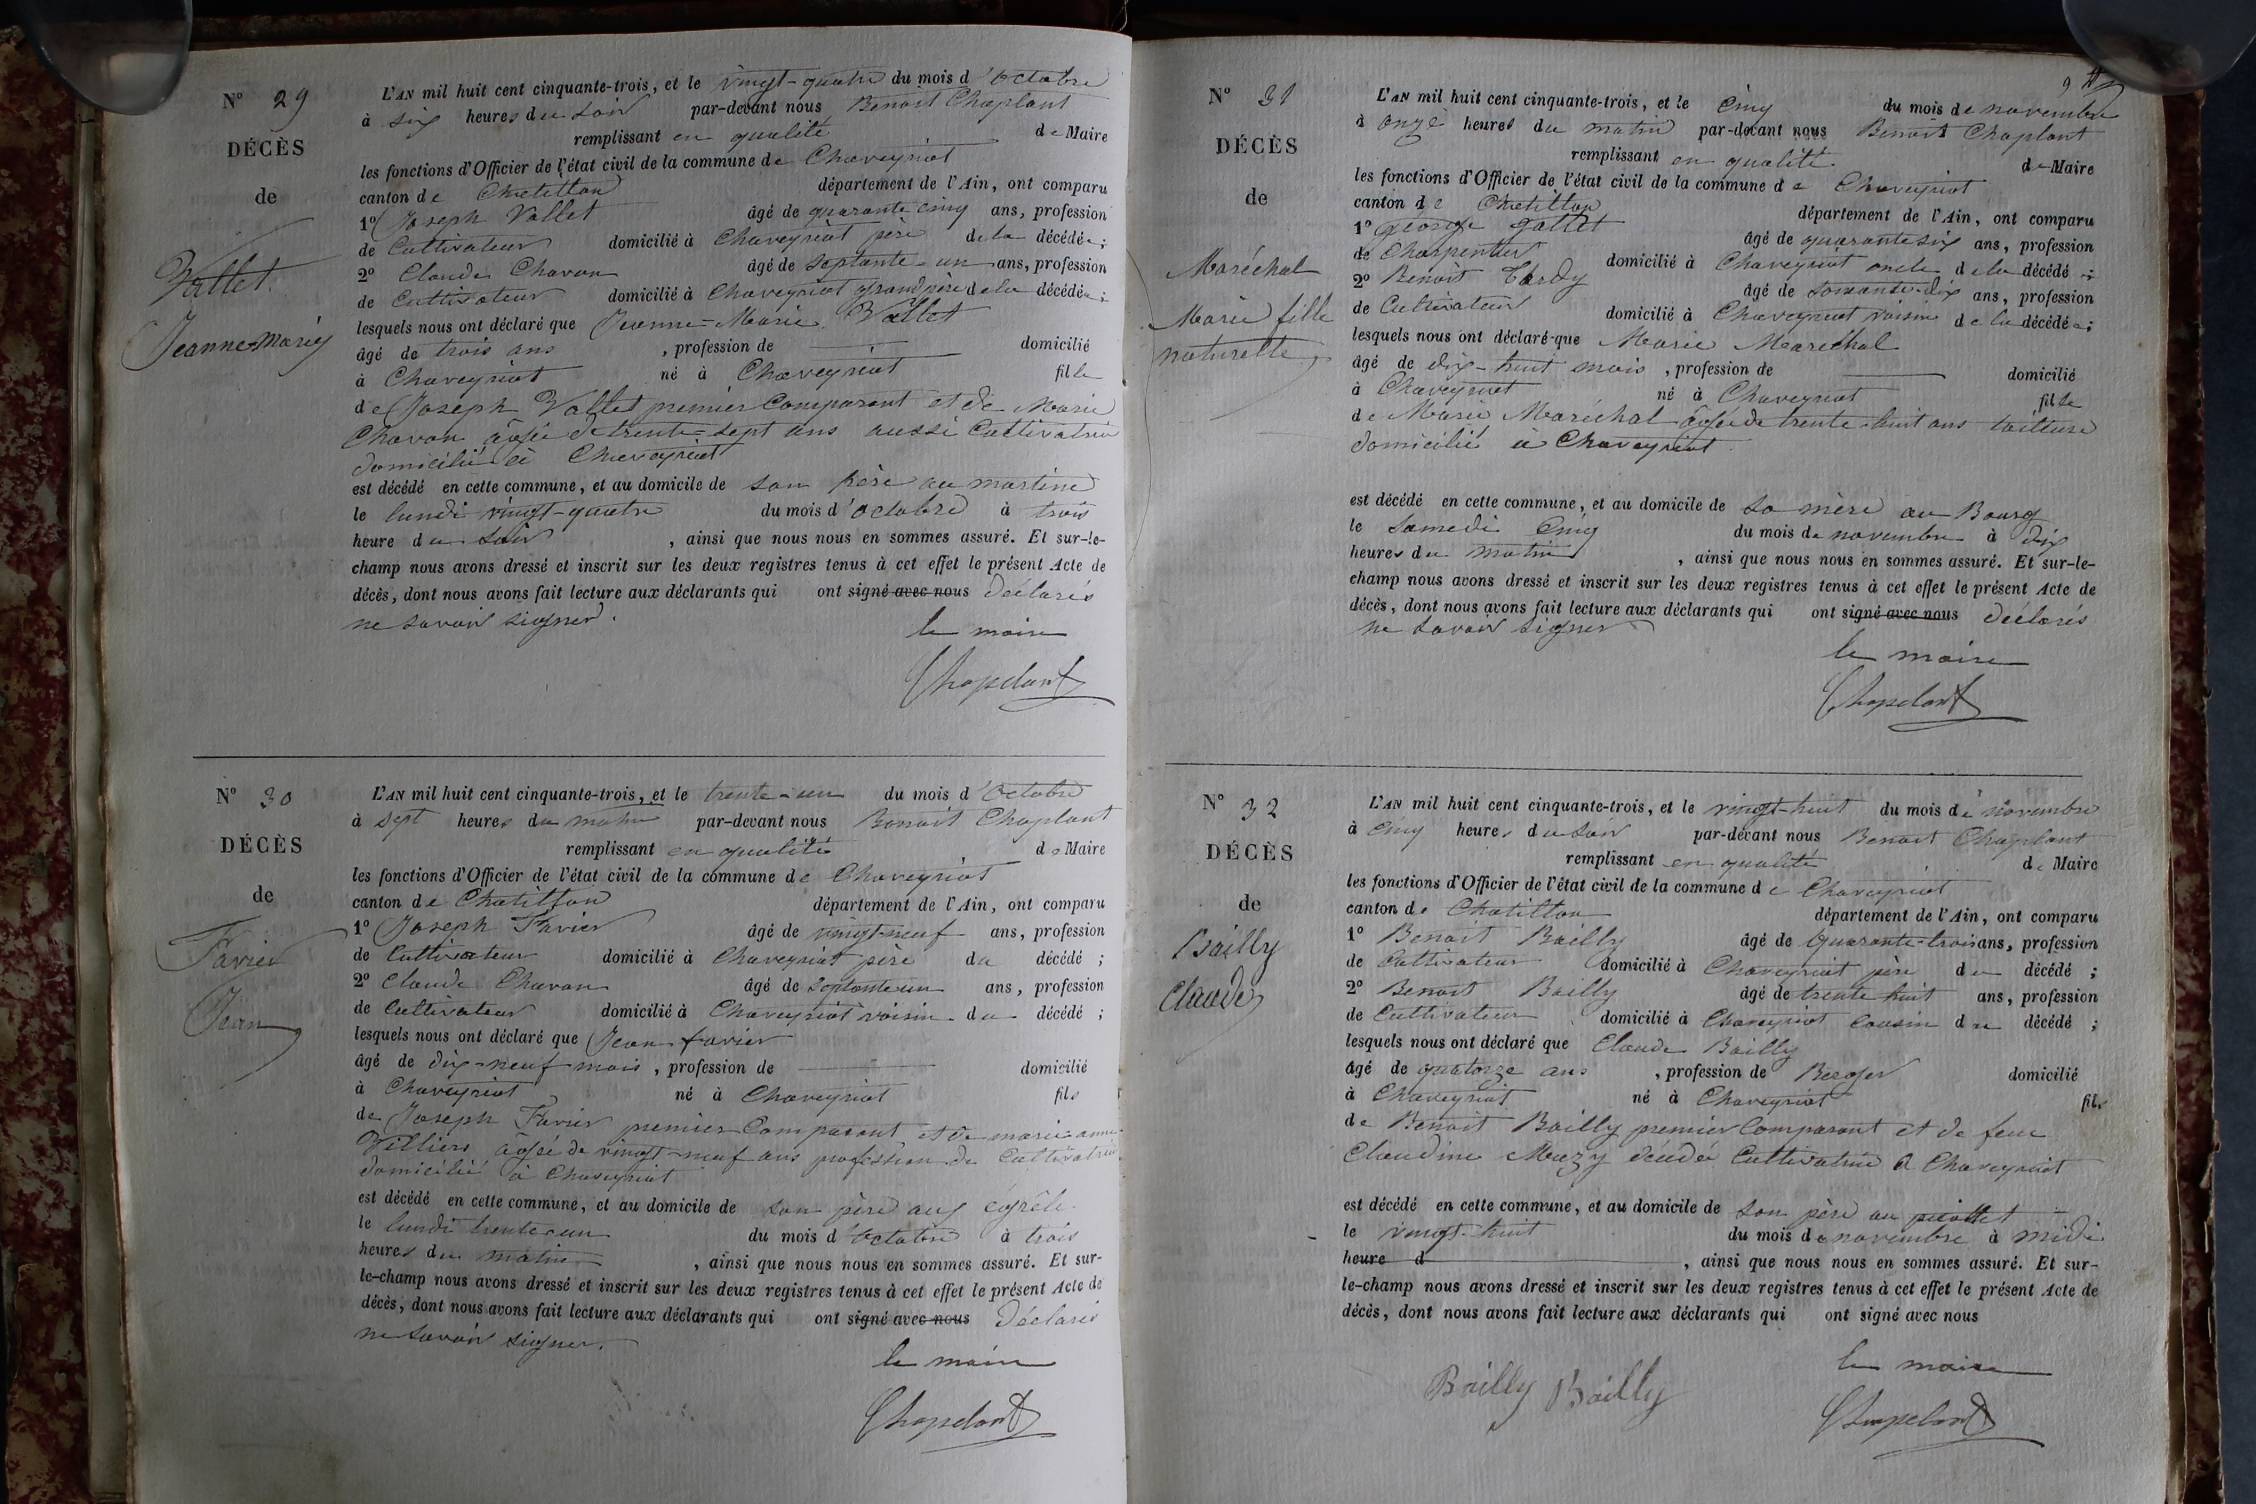 N° 29
DÉCÈS
de
Vallet
Jeanne-Marie
L'AN mil huit cent cinquante-trois, et le vingt-quatre du mois d'octobre
à six heures du soir par-devant nous Benoit Chaplant
remplissant en qualité de Maire
les fonctions d'Officier de l'état civil de la commune de Chaveyriat
canton de Chatillon département de l'Ain, ont comparu
1° Joseph Vallet âgé de quarante cinq ans, profession
de Cultivateur domicilié à Chaveyriat père de la décédée;
2° Claude Chavan âgé de septante-un ans, profession
de Cultivateur domicilié à Chaveyriat grand père de la décédée;
lesquels nous ont déclaré que Jeanne-Marie Vallet
âgé de trois ans, profession de domicilié
à Chaveyriat né à Chaveyriat fille
de Joseph Vallet premier Comparant et de Marie
Chavan âgée de trente-sept ans aussi Cultivatrice
domicilié à Chaveyriat
est décédé en cette commune, et au domicile de son père au martine
le lundi vingt-quatre du mois d'octobre à trois
heure du soir, ainsi que nous nous en sommes assuré. Et sur-le-
champ nous avons dressé et inscrit sur les deux registres tenus à cet effet le présent Acte de
décès, dont nous avons fait lecture aux déclarants qui ont signé avec nous déclarés
ne savoir signer.
le maire
Chapelant
N° 30
DÉCÈS
de
Favier
Jean
L'AN mil huit cent cinquante-trois, et le trente-un du mois d'Octobre
à sept heures du matin par-devant nous Benoit Chaplant
remplissant en qualité de Maire
les fonctions d'Officier de l'état civil de la commune de Chaveyriat
canton de Chatillon département de l'Ain, ont comparu
1° Joseph Favier âgé de vingt-neuf ans, profession
de Cultivateur domicilié à Chaveyriat père du décédé;
2° Claude Chavan âgé de septante un ans, profession
de Cultivateur domicilié à Chaveyriat voisin du décédé;
lesquels nous ont déclaré que Jean favier
âgé de dix-neuf mois, profession de domicilié
à Chaveyriat né à Chaveyriat fils
de Joseph Favier premier Comparant et de marie anne
Villiers âgé de vingt-neuf ans profession de Cultivatrice
domicilié à Chaveyriat
est décédé en cette commune, et au domicile de son père aux
le lundi trente-un du mois d'Octobre à trois
heures du matin, ainsi que nous nous en sommes assuré. Et sur-
le-champ nous avons dressé et inscrit sur les deux registres tenus à cet effet le présent Acte de
décès, dont nous avons fait lecture aux déclarants qui ont signé avec nous Déclarés
ne savoir signer.
le maire
Chapelant
9
N° 31
DÉCÈS
de
Maréchal
Marie fille
naturelle
L'AN mil huit cent cinquante-trois, et le Cinq du mois de novembre
à onze heures du matin par-devant nous Benoit Chaplant
remplissant en qualité de Maire
les fonctions d'Officier de l'état civil de la commune de Chaveyriat
canton de Chatillon département de l'Ain, ont comparu
1° george gallet âgé de quarante six ans, profession
de Charpentier domicilié à Chaveyriat oncle de la décédé;
2° Benoit Tardy âgé de soixante-dix ans, profession
de Cultivateur domicilié à Chaveyriat voisin de la décédée;
lesquels nous ont déclaré que Marie Maréchal
âgé de dix-huit mois, profession de domicilié
à Chaveyriat né à Chaveyriat fille
de Marie Maréchal âgée de trente-huit ans tailleuse
domicilié à Chaveyriat
est décédé en cette commune, et au domicile de sa mère au Bourg
le Samedi Cinq du mois de novembre à dix
heures du matin, ainsi que nous nous en sommes assuré. Et sur-le-
champ nous avons dressé et inscrit sur les deux registres tenus à cet effet le présent Acte de
décès, dont nous avons fait lecture aux déclarants qui ont signé avec nous déclarés
ne savoir signer
le maire
Chapelant
N° 32
DÉCÈS
de
Bailly
Claude
L'AN mil huit cent cinquante-trois, et le vingt-huit du mois de novembre
à cinq heures du soir par-devant nous Benoit Chaplant
remplissant en qualité de Maire
les fonctions d'Officier de l'état civil de la commune de Chaveyriat
canton de Chatillon département de l'Ain, ont comparu
1° Benoit Bailly âgé de quarante-trois ans, profession
de Cultivateur domicilié à Chaveyriat père du décédé;
2° Benoit Bailly âgé de trente huit ans, profession
de Cultivateur domicilié à Chaveyriat Cousin du décédé;
lesquels nous ont déclaré que Claude Bailly
âgé de quatorze ans, profession de Berger domicilié
à Chaveyriat né à Chaveyriat fils
de Benoit Bailly premier Comparant et de feue
Claudine Mazy décédé Cultivatrice à Chaveyriat
est décédé en cette commune, et au domicile de son père au
le vingt-huit du mois de novembre à midi
heure d, ainsi que nous nous en sommes assuré. Et sur-
le-champ nous avons dressé et inscrit sur les deux registres tenus à cet effet le présent Acte de
décès, dont nous avons fait lecture aux déclarants qui ont signé avec nous
le maire
Bailly Bailly
Chapelant